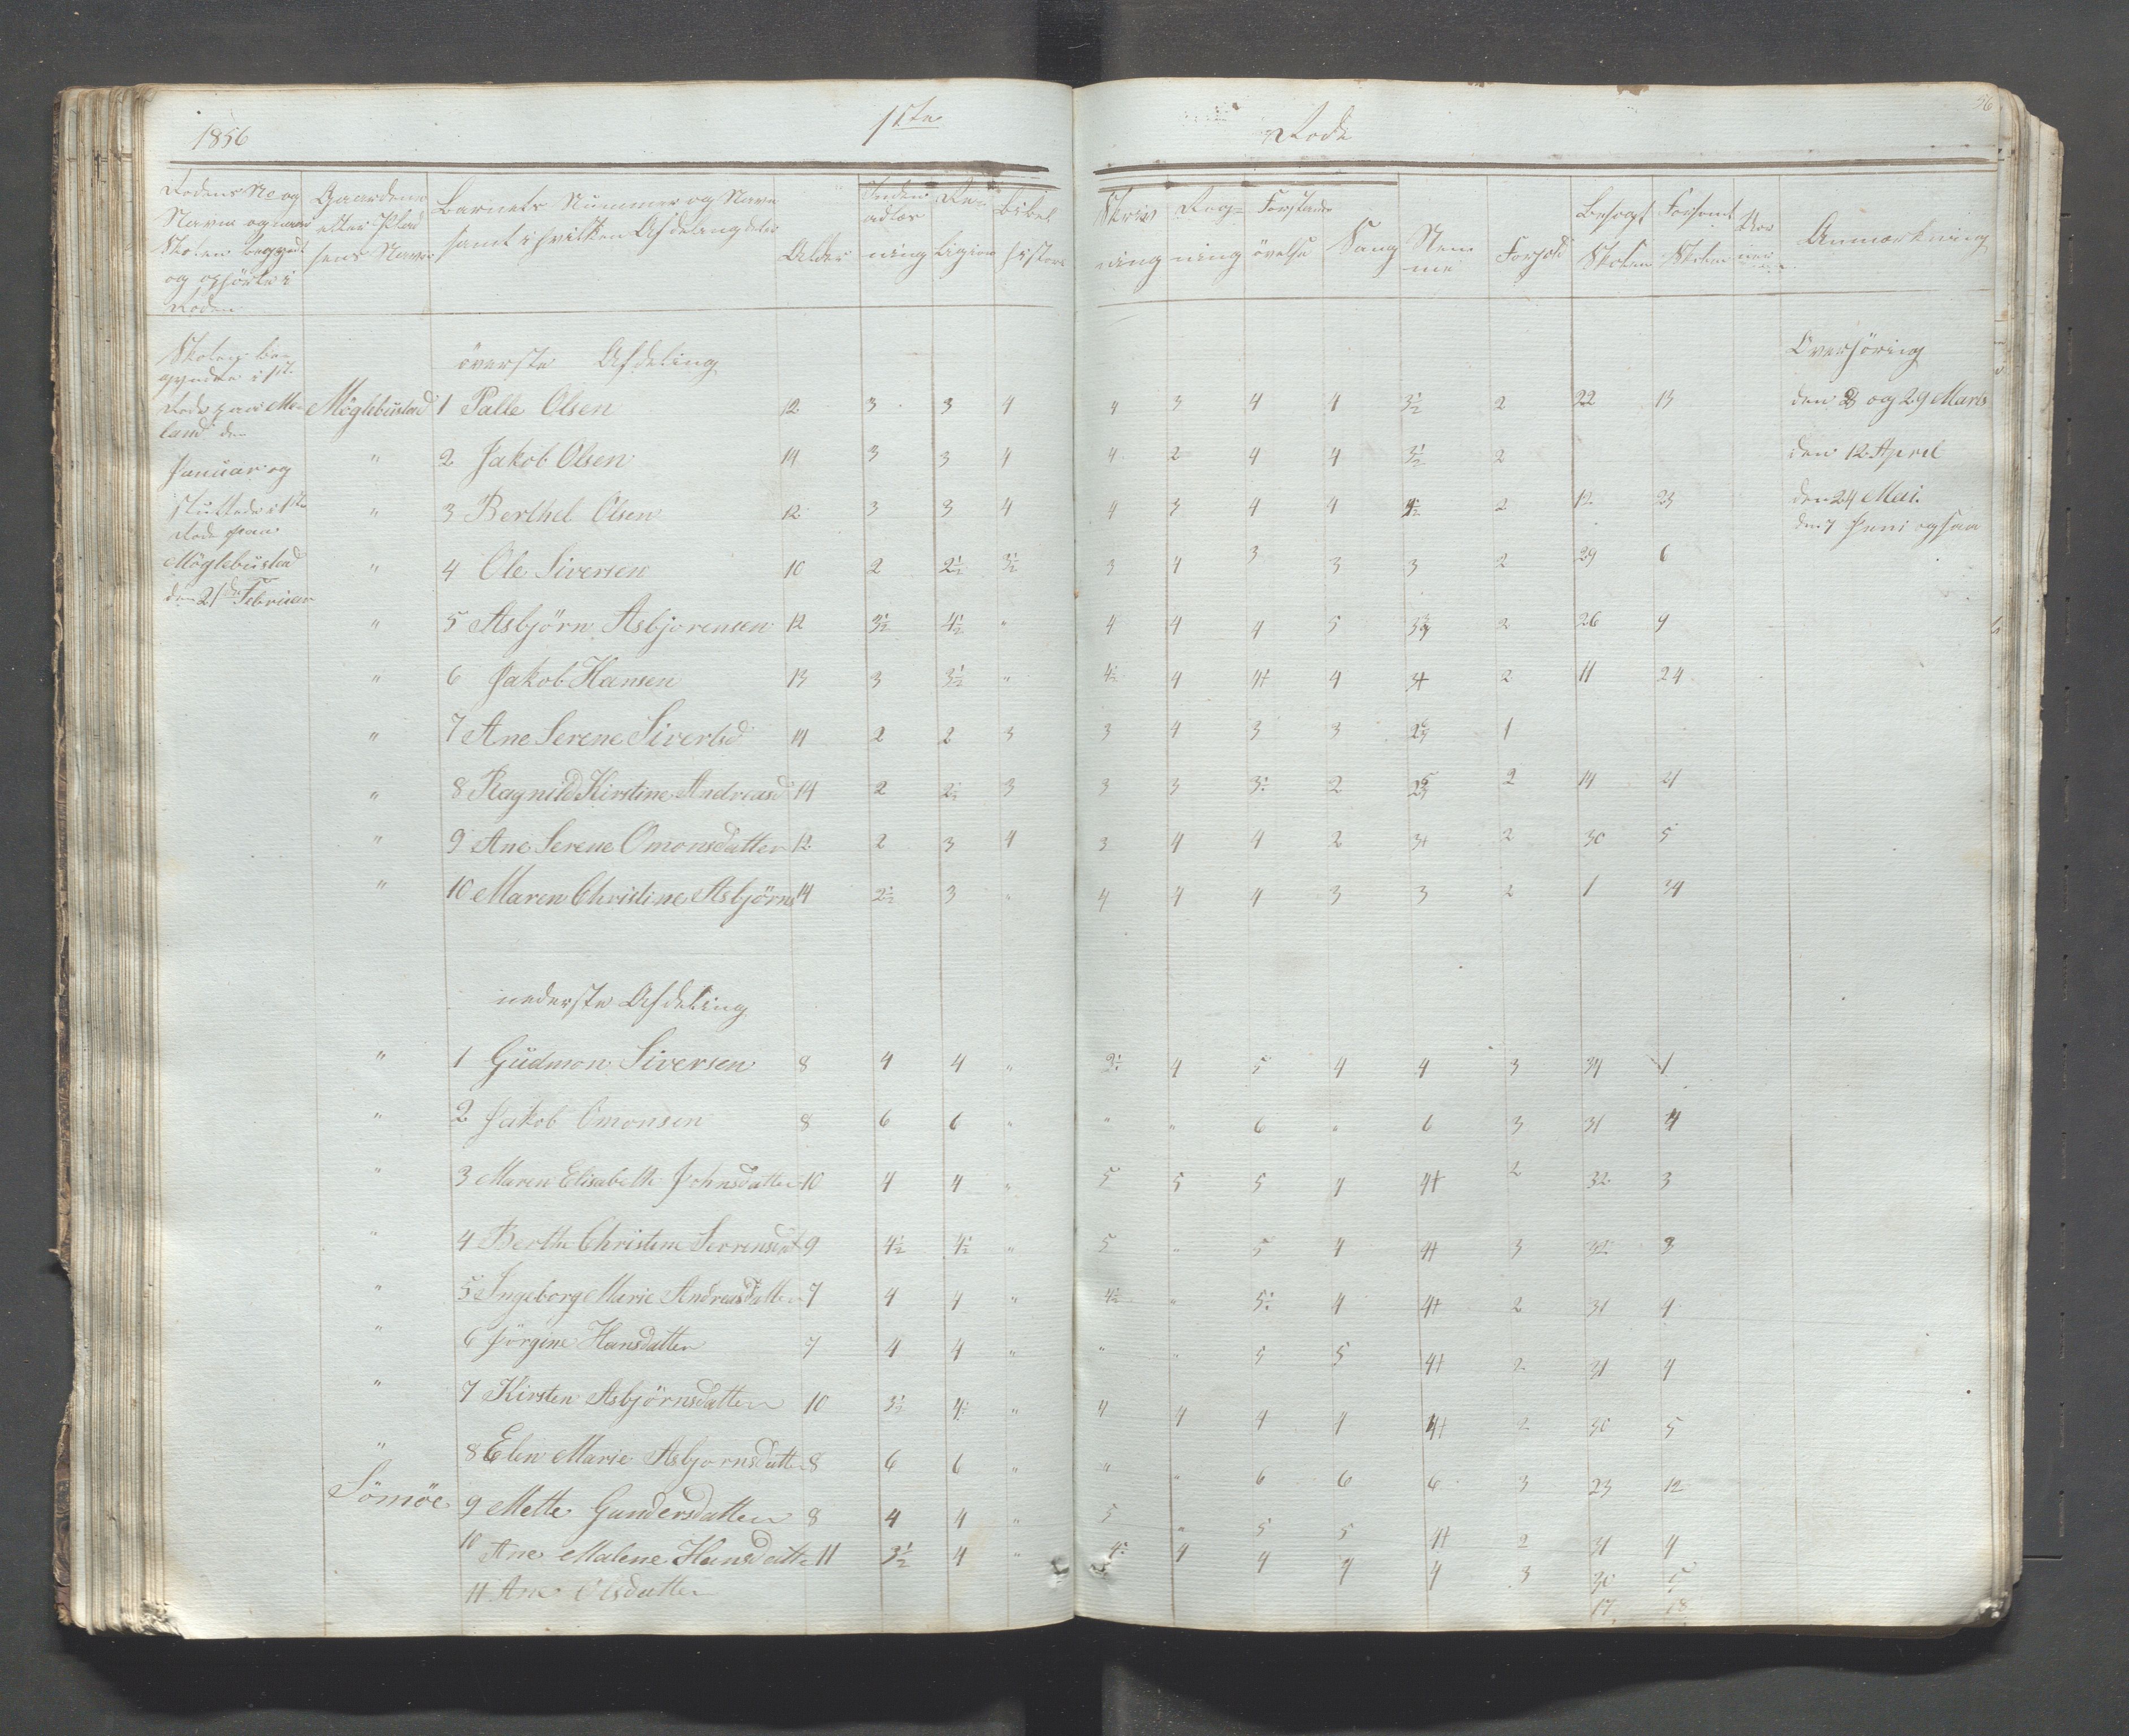 1856 1ste Rode 76
Rodens No og Navn og naar Skolen begyndte og ophörte i Roden
Gaardens eller Pladsens Navn
Barnets Nummer og Navn samt i hvilken Afdeling det er
Alder
Indenadlæsning
Religion
Bibelhistorie
Skrivning
Regning
Forstandsövelse
Sang
Nemme
Forhold
Besögt Skolen
Forsömt Skolen
Anmærkning
Skolen begyndte i 1ste
Rode paa Meland den
Januar og
sluttede i 1ste
Rode paa
Möglebüstad
den 21de Februar
överste Afdeling
Overhöring
Möglebüstad 1 Palle Olsen 12 3 3 4 4 3 4 4 3½ 2 22 13 den 28 og 29 Marts
" 2 Jakob Olsen 14 3 3 4 4 2 4 4 3½ 2 den 12 April
" 3 Berthel Olsen 12 3 3 4 4 3 4 4 4½ 2 12 23 den 24 Mai.
den 7 Juni ogsaa
" 4 Ole Siversen 10 2 2½ 3½ 3 4 3 3 3 2 29 6
" 5 Asbjörn Asbjorensen 12 3½ 4½ " 4 4 4 5 2 26 9
" 6 Jakob Hansen 13 3 3½ " 4½ 4 4+ 4 3+ 2 11 24
" 7 Ane Serene Sivertsd 14 2 2 3 3 4 3 3 1
" 8 Ragnild Kirstine Andreasd 14 2 2½ 3 3 3 3½ 2 2 14 21
" 9 Ane Serene Omonsdatter 12 2 3 4 3 4 4 2 3+ 2 30 5
" 10 Maren Christine Asbjörns 14 2½ 3 " 4 4 4 3 3 2 1 34
nederste Afdeling
" 1 Güdmon Siversen 8 4 4 " 2½ 4 5 4 4 3 34 1
" 2 Jakob Omonsen 8 6 6 " " " 6 " 6 3 31 4
" 3 Maren Elisabeth Johnsdatter 10 4 4 " 5 5 5 4 4+ 2 32 3
" 4 Berthe Christine Serrensdat 9 4½ 4½ " 5 " 5 4 4+ 3 32 3
" 5 Ingeborg Marie Andreasdatter 7 4 4 " 4½ " 5½ 4 4+ 2 31 4
" 6 Jörgine Hansdatter 7 4 4 " " " 5 5 4+ 2 31 4
" 7 Kirsten Asbjörnsdatter 10 3½ 4½ " 4 4 4 4 4+ 2 30 5
" 8 Elen Marie Asbjornsdatter 8 6 6 " " " 6 6 6 3 23 12
Sömöe 9 Mette Gundersdatter 8 4 4 " 5 " 5 5 4+ 2 31 4
10 Ane Malene Hansdatte 11 3½ 4 " 4½ 4 4 4 4 3 30 5
11 Ane Olsdatter 17 18